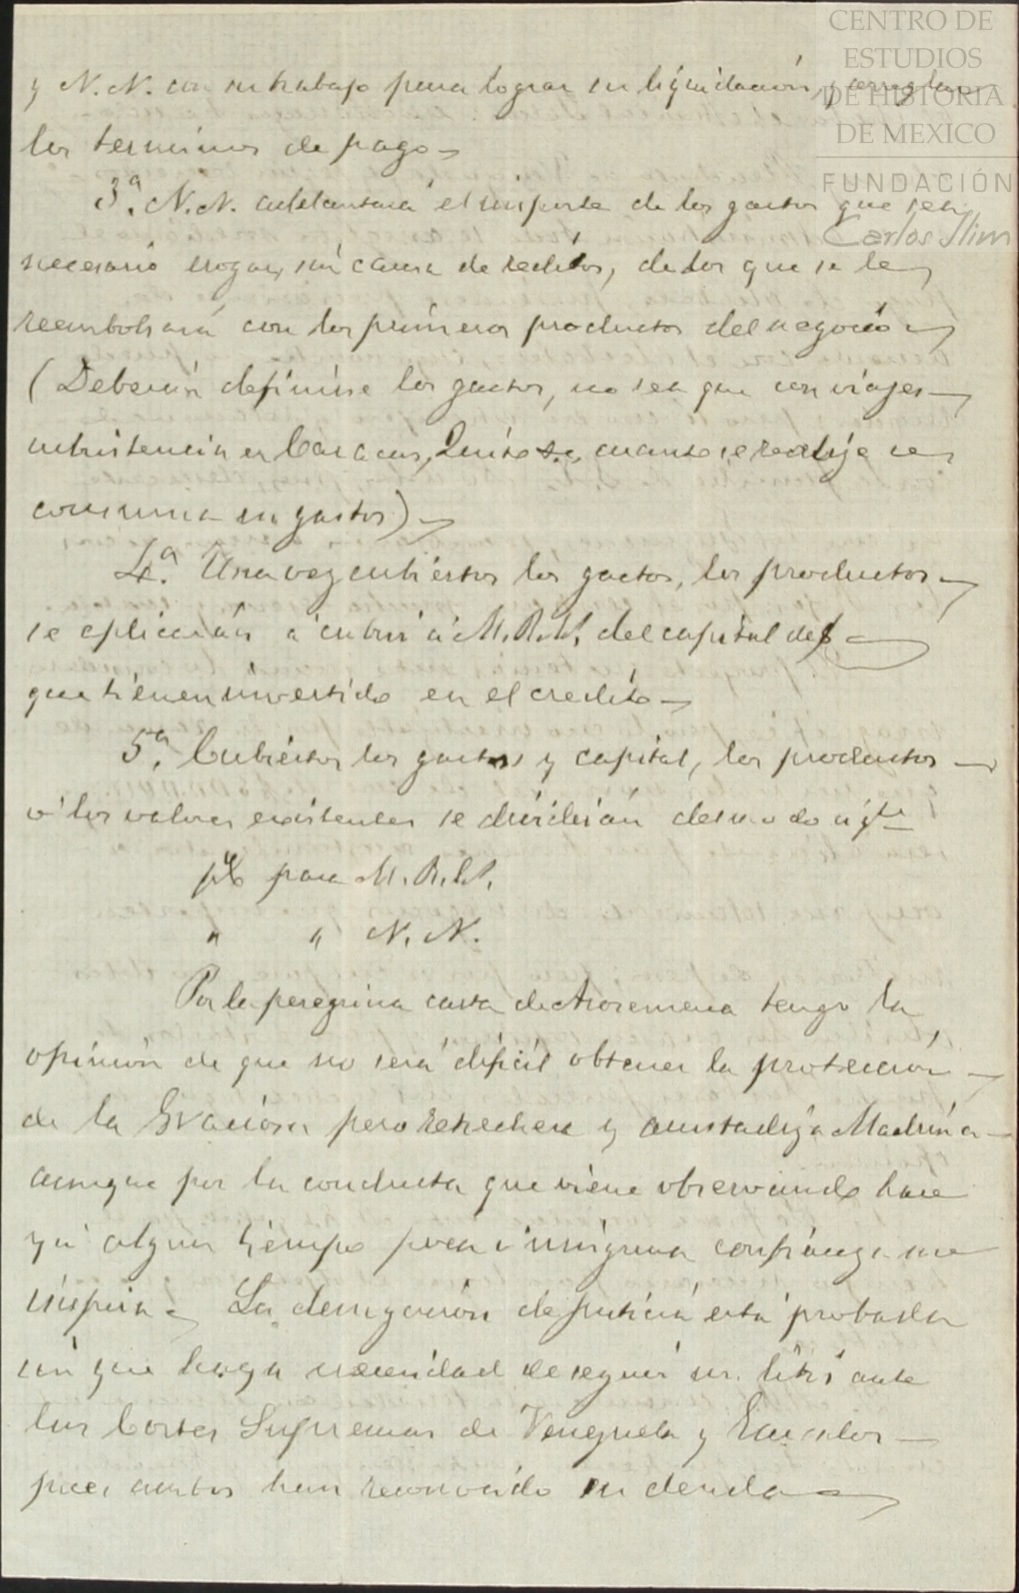 CENTRO DE
ESTUDIOS
DE HISTORIA
DE MEXICO
FUNDACIÓN
Carlos Slim
y N. N. con su trabajo para lograr su liquidación, y arreglar
los terminos de pago
3ª. N. N. adelantará el importe de los gastos que sea
necesario erogar, sin causa de reditos, de los que se le
reembolsará con los primeros productos del negocio
(Deberán definirse los gastos, no sea que con viajes
subsistencia en Caracas, Quito &c, cuanto se realize se
consuma en gastos)
4ª. Una vez cubiertos los gastos, los productos
se aplicarán á cubrir á M. R. del capital de $
que tienen invertido en el credito
5ª. Cubiertos los gastos y capital, los productos
ó los valores existentes se dividirán del modo sigte
p% para M. R.
" " N. N.
Por la peregrina carta de tengo la
opinión de que no será dificil obtener la protección
de la Graciosa pero retrechera y Madrina
aunque por la conducta que viene observando hace
ya algun tiempo poca ó ninguna confianza me
inspira. La denegación de justicia está probada
sin que haya necesidad de seguir un litis ante
las Cortes Supremas de Venezuela y Ecuador
pues ambos han reconocido su deuda